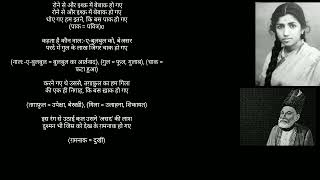 रोने से और इश्क़ में बेबाक हो गए
रोने से और इश्क़ में बेबाक हो गए
धोए गए हम इतने, कि बस पाक हो गए
(पाक = पवित्र)
कहता है कौन नाल:-ए-बुलबुल को, बेअसर
परदे में गुल के लाख जिगर चाक हो गए
(नाल:-ए-बुलबुल = बुलबुल का आर्तनाद), (गुल = फूल, गुलाब), (चाक = फटा हुआ)
करने गए थे उससे, तग़ाफ़ुल का हम गिला
की एक ही निगाह, कि बस ख़ाक हो गए
(तग़ाफ़ुल = उपेक्षा, बेरुख़ी), (गिला = उलाहना, शिकायत)
इस रंग से उठाई कल उसने 'असद' की लाश
दुश्मन भी जिस को देख के ग़मनाक हो गए
(ग़मनाक = दुखी)